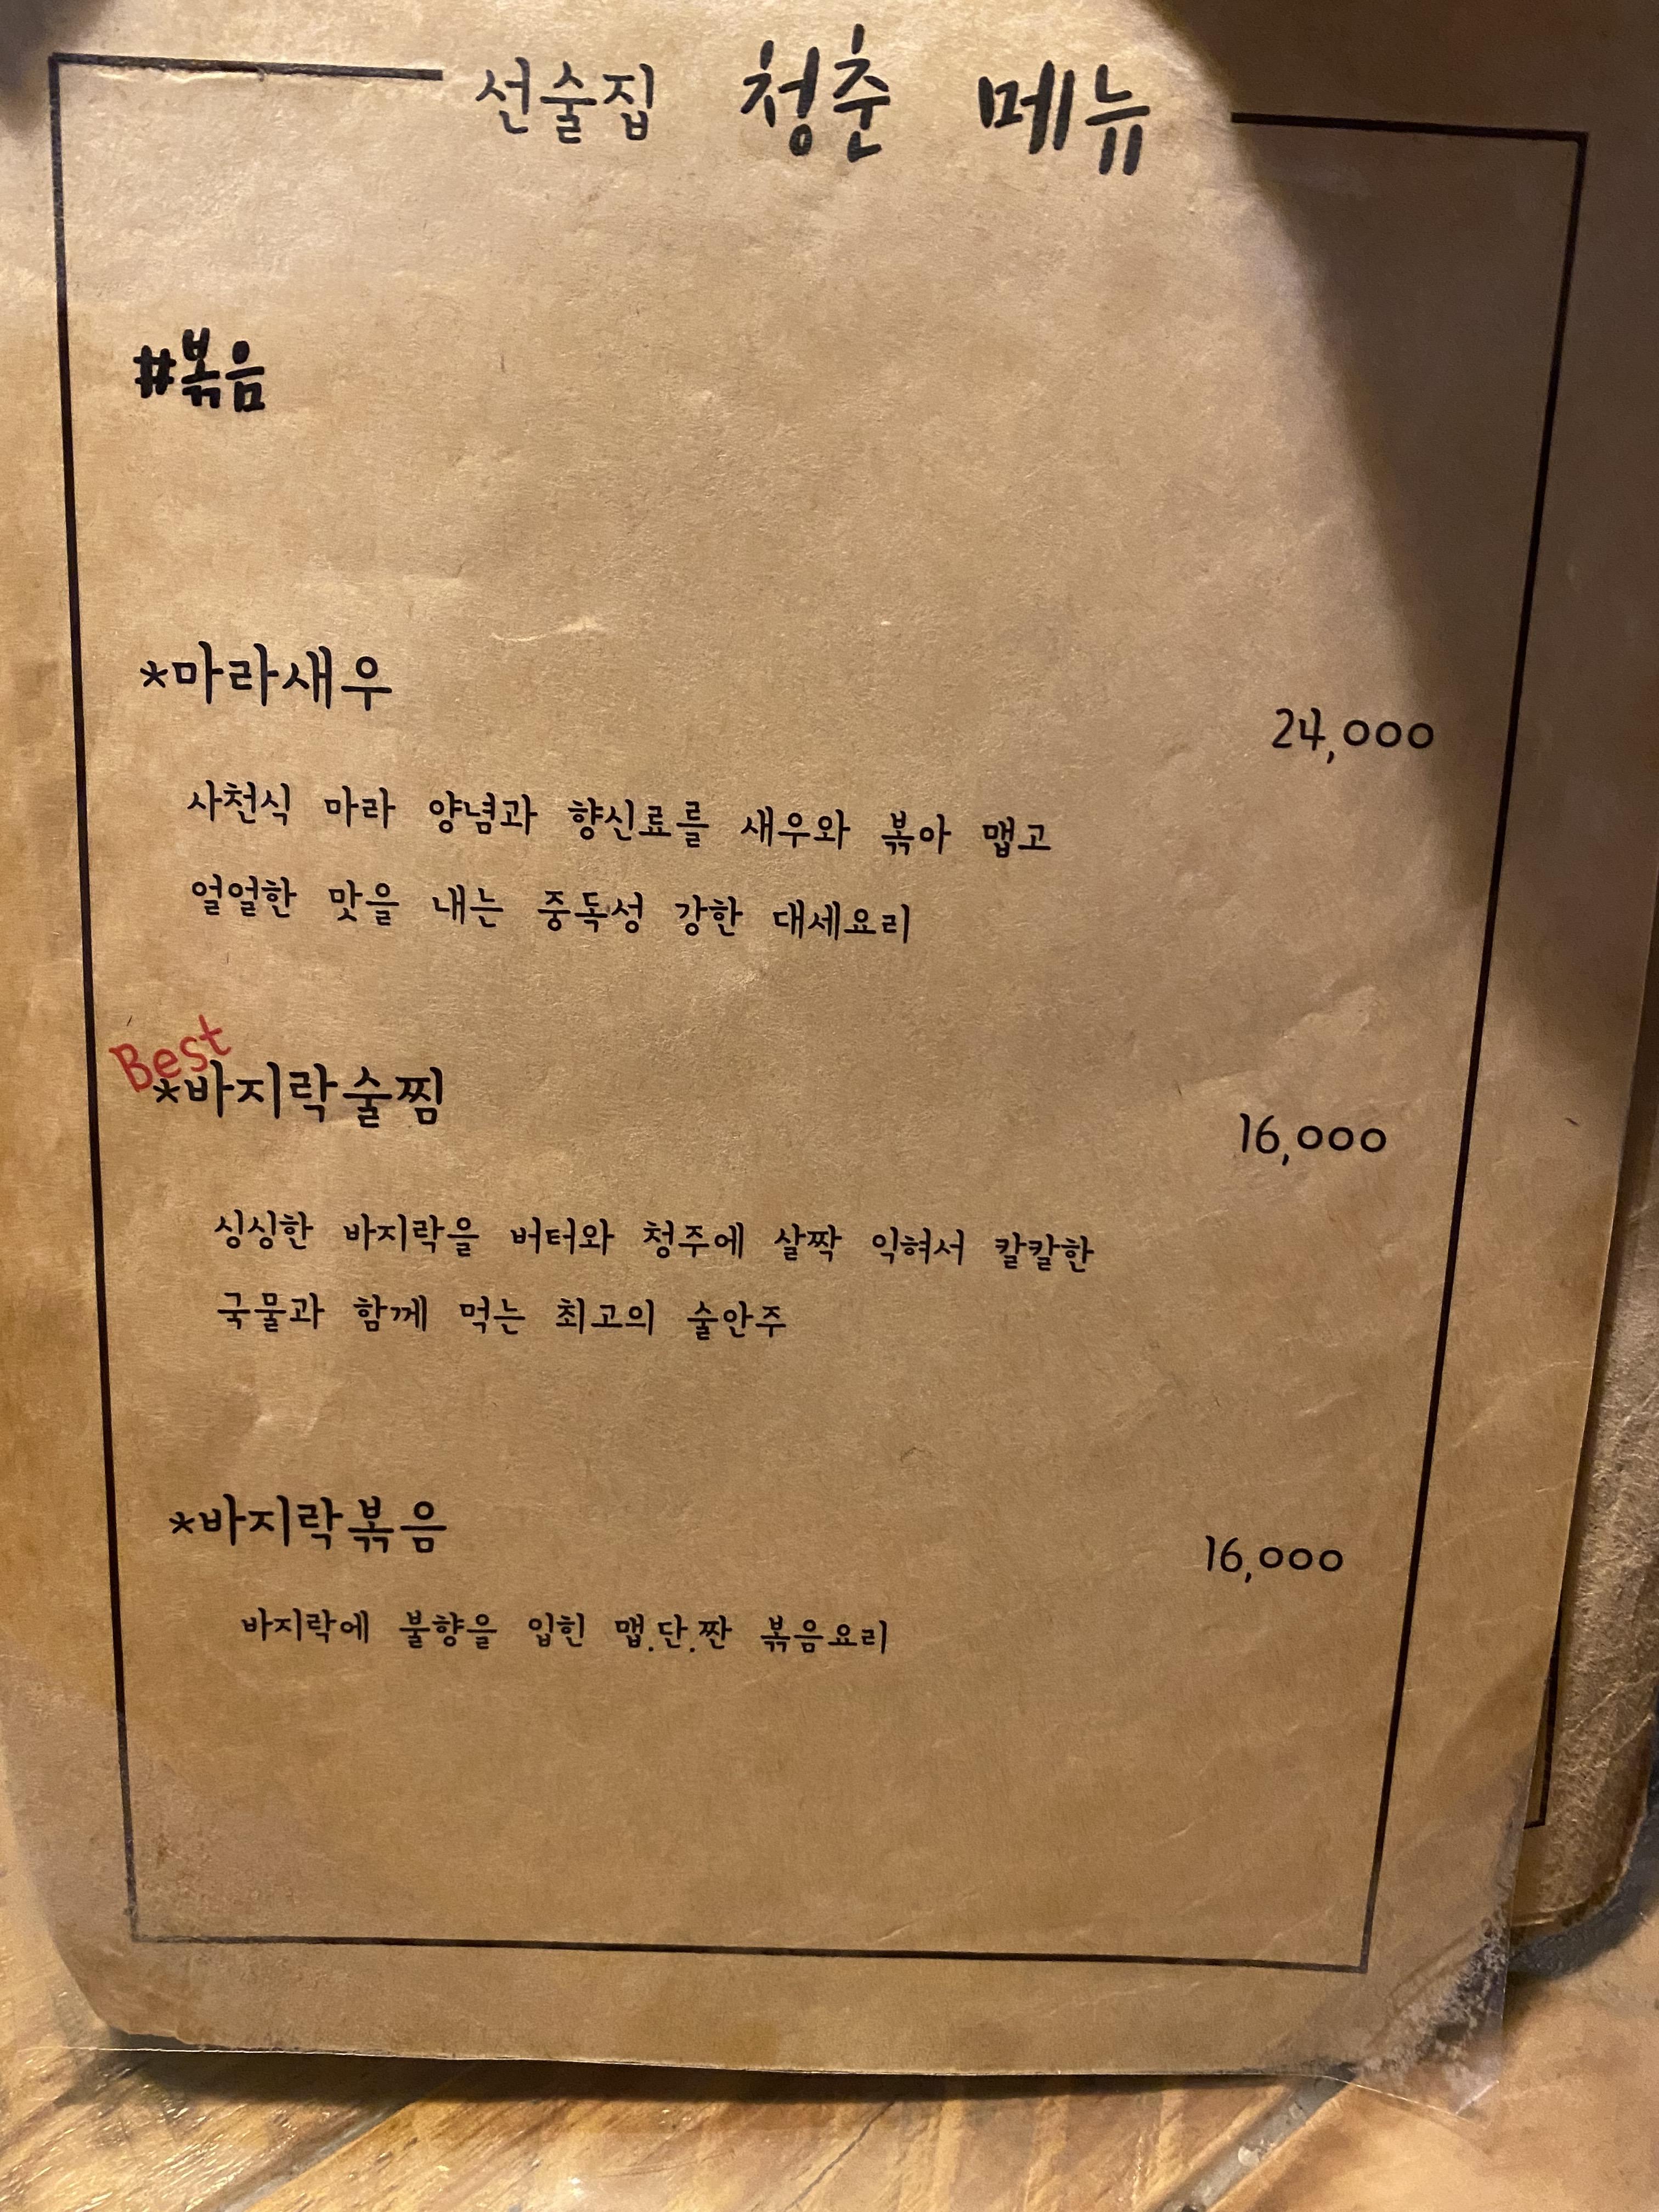 선술집 청춘 메뉴
#볶음
*마라새우
24,000
사천식 마라 양념과 향신료를 새우와 볶아 맵고
얼얼한 맛을 내는 중독성 강한 대세요리
Best
*바지락술찜
16,000
싱싱한 바지락을 버터와 청주에 살짝 익혀서 칼칼한
국물과 함께 먹는 최고의 술안주
*바지락볶음
16,000
바지락에 불향을 입힌 맵.단.짠 볶음요리